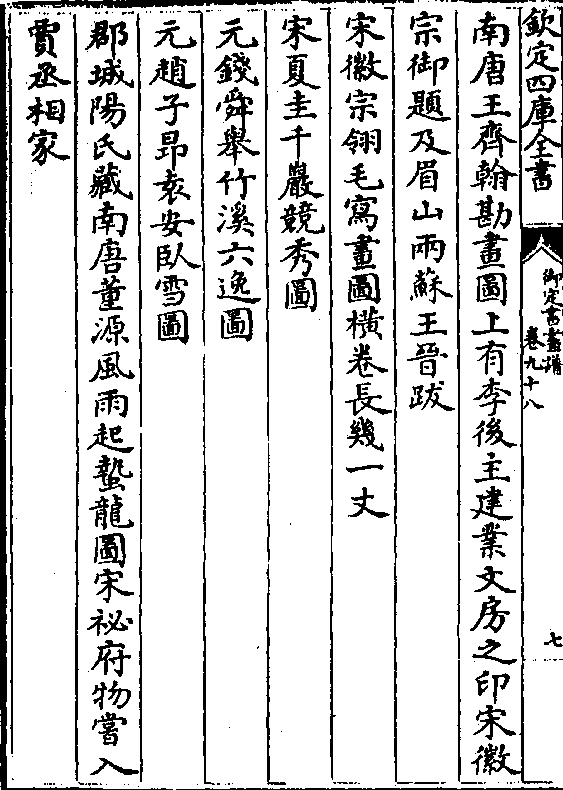 欽定四庫全書
御定書畫譜
卷九十八
七
南唐王齊翰勘畫圖上有李後主建業文房之印宋徽
宗御題及眉山兩蘇王晉跋
宋徽宗翎毛寫畫圖横卷長幾一丈
宋夏圭千巖競秀圖
元錢舜舉竹溪六逸圖
元趙子昂袁安臥雪圖
郡城陽氏藏南唐董源風雨起蟄龍圖宋祕府物嘗入
賈丞相家